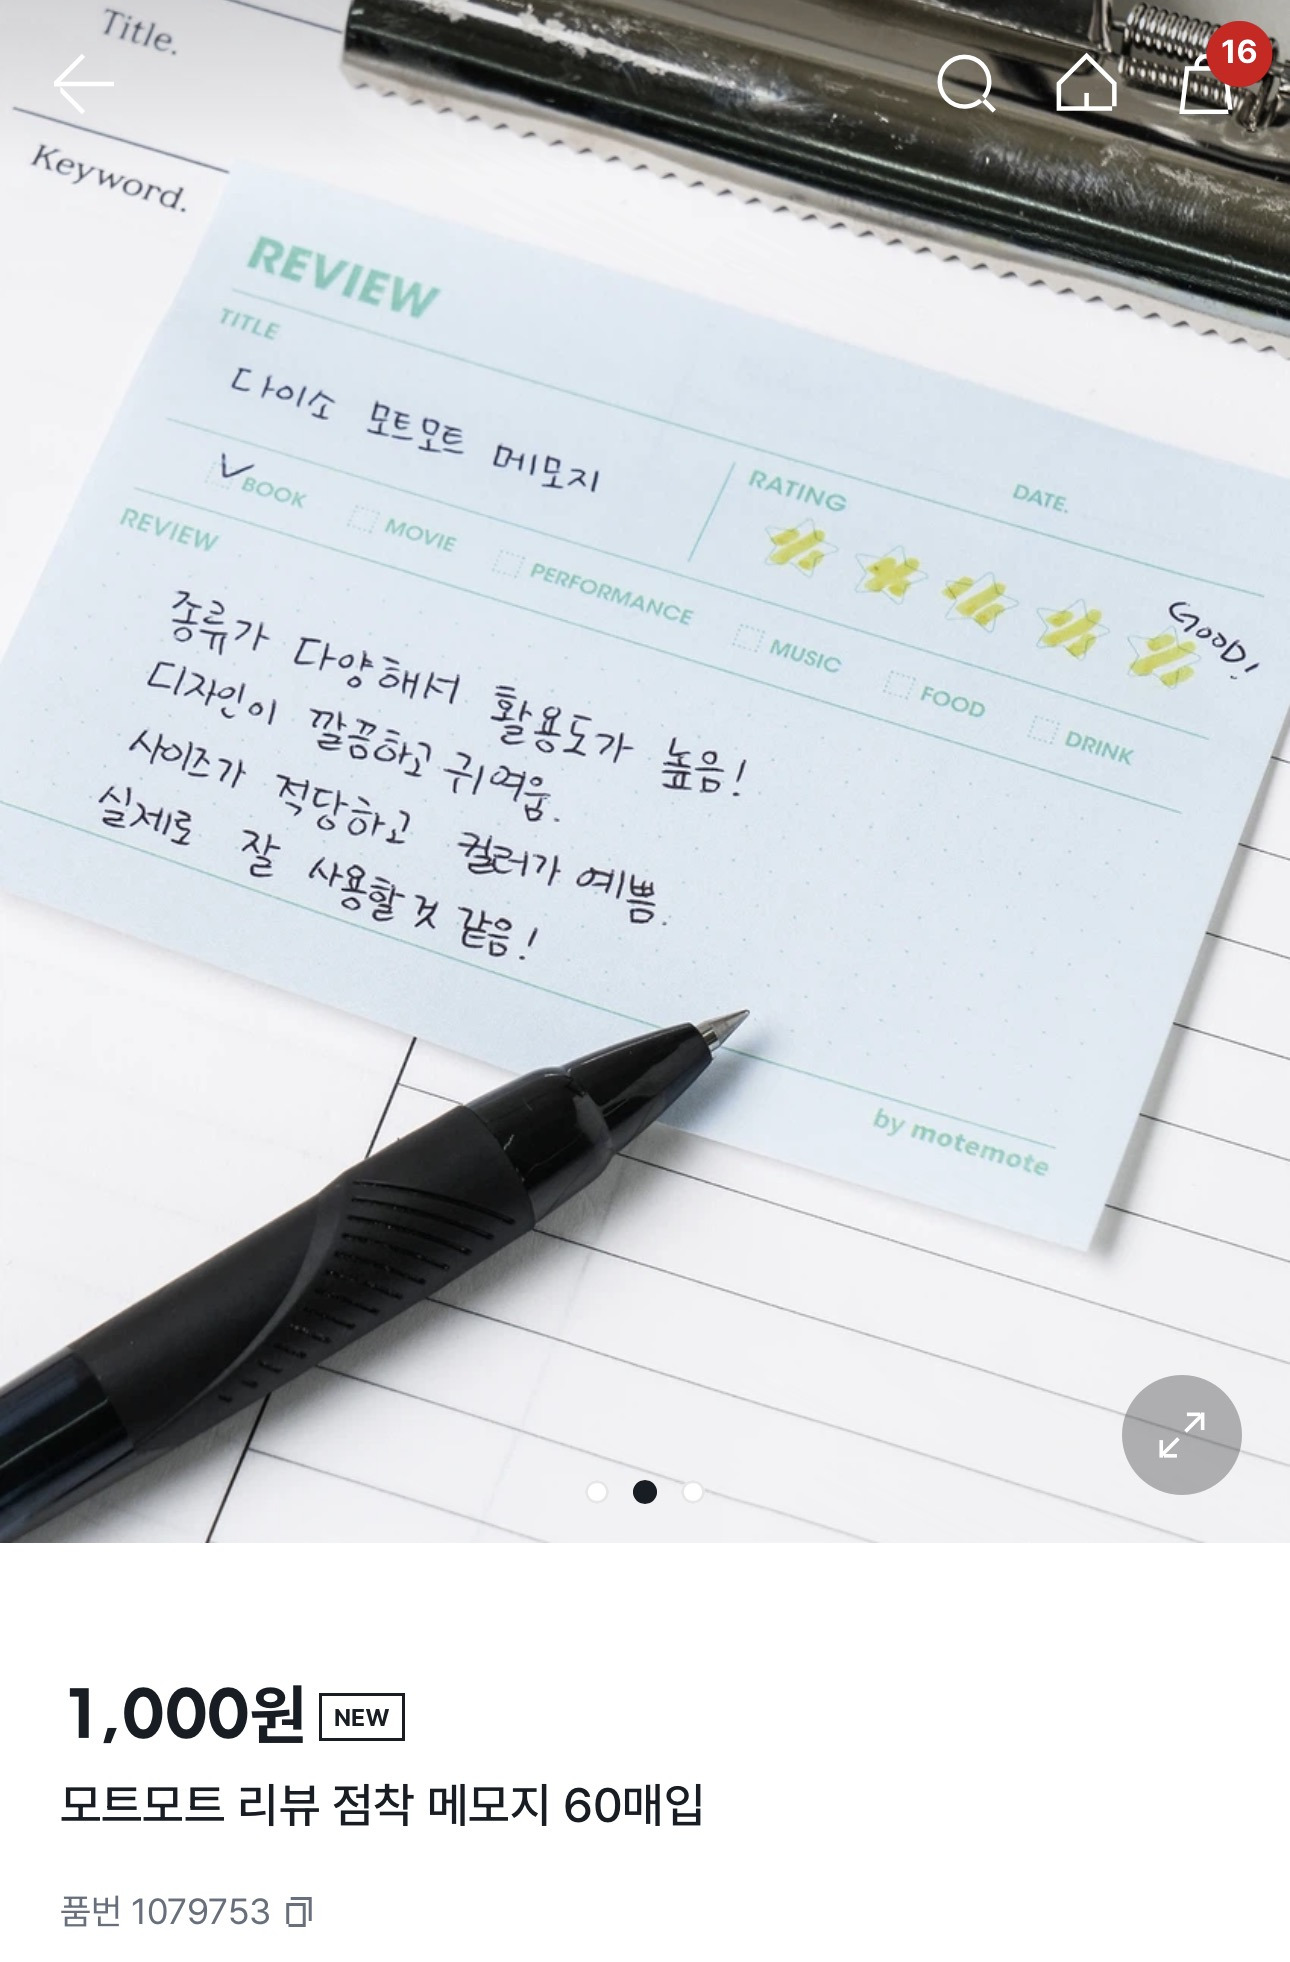 Title.
16
Keyword.
REVIEW
TITLE
다이소 모트모트 메모지
RATING
DATE.
GOOD!
BOOK
MOVIE
PERFORMANCE
MUSIC
FOOD
DRINK
REVIEW
종류가 다양해서 활용도가 높음!
디자인이 깔끔하고 귀여움.
사이즈가 적당하고 컬러가 예쁨.
실제로 잘 사용할것 같음!
by motemote
1,000원 NEW
모트모트 리뷰 점착 메모지 60매입
품번 1079753